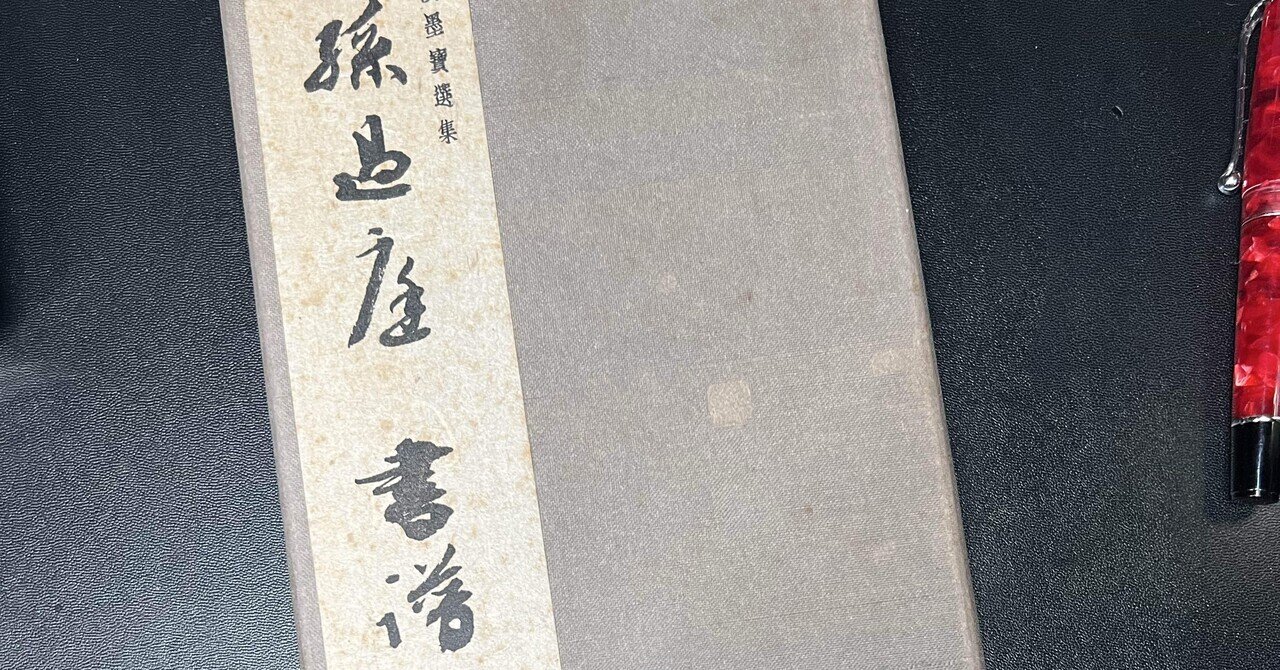 墨寶選集
孫過庭 書譜